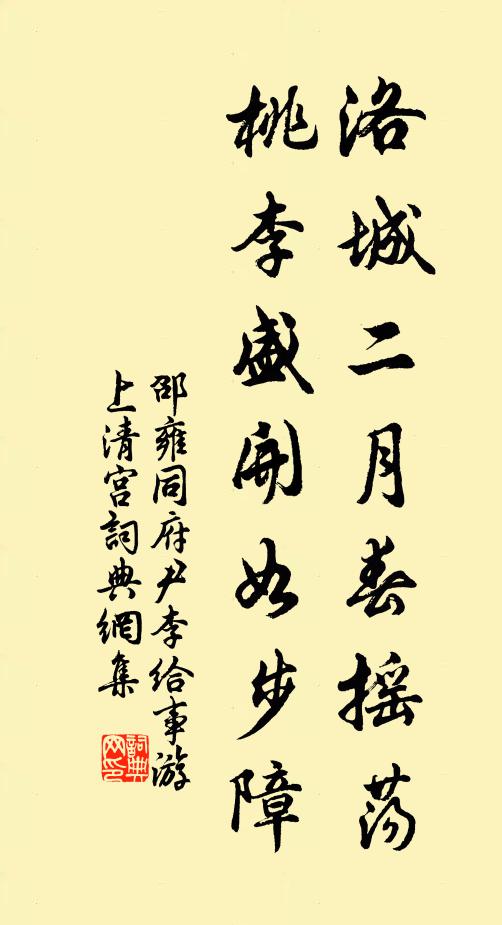 洛城二月春摇荡
桃李盛開如步障
邵雍同府尹李给事游
上清宫詞典網集
詞典
网印